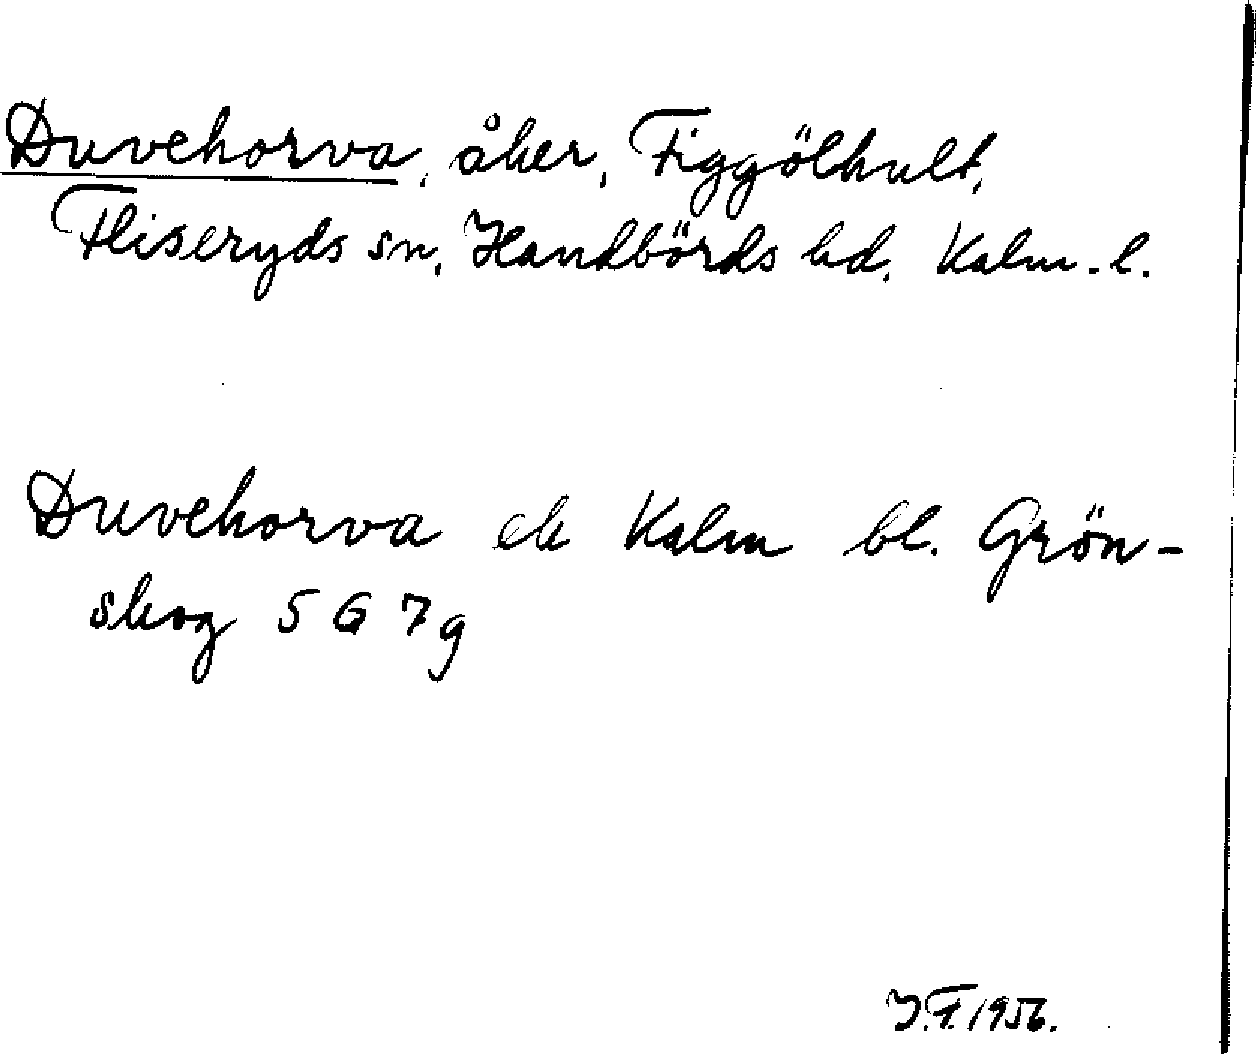 Duvehorva, åker, Figgölhult,
Fliseryds sn, Handbörds hd, Kalm. l.
Duvehorva ek Kalm bl. Grön-
skog 5 G 7 g
J.F. 1956.